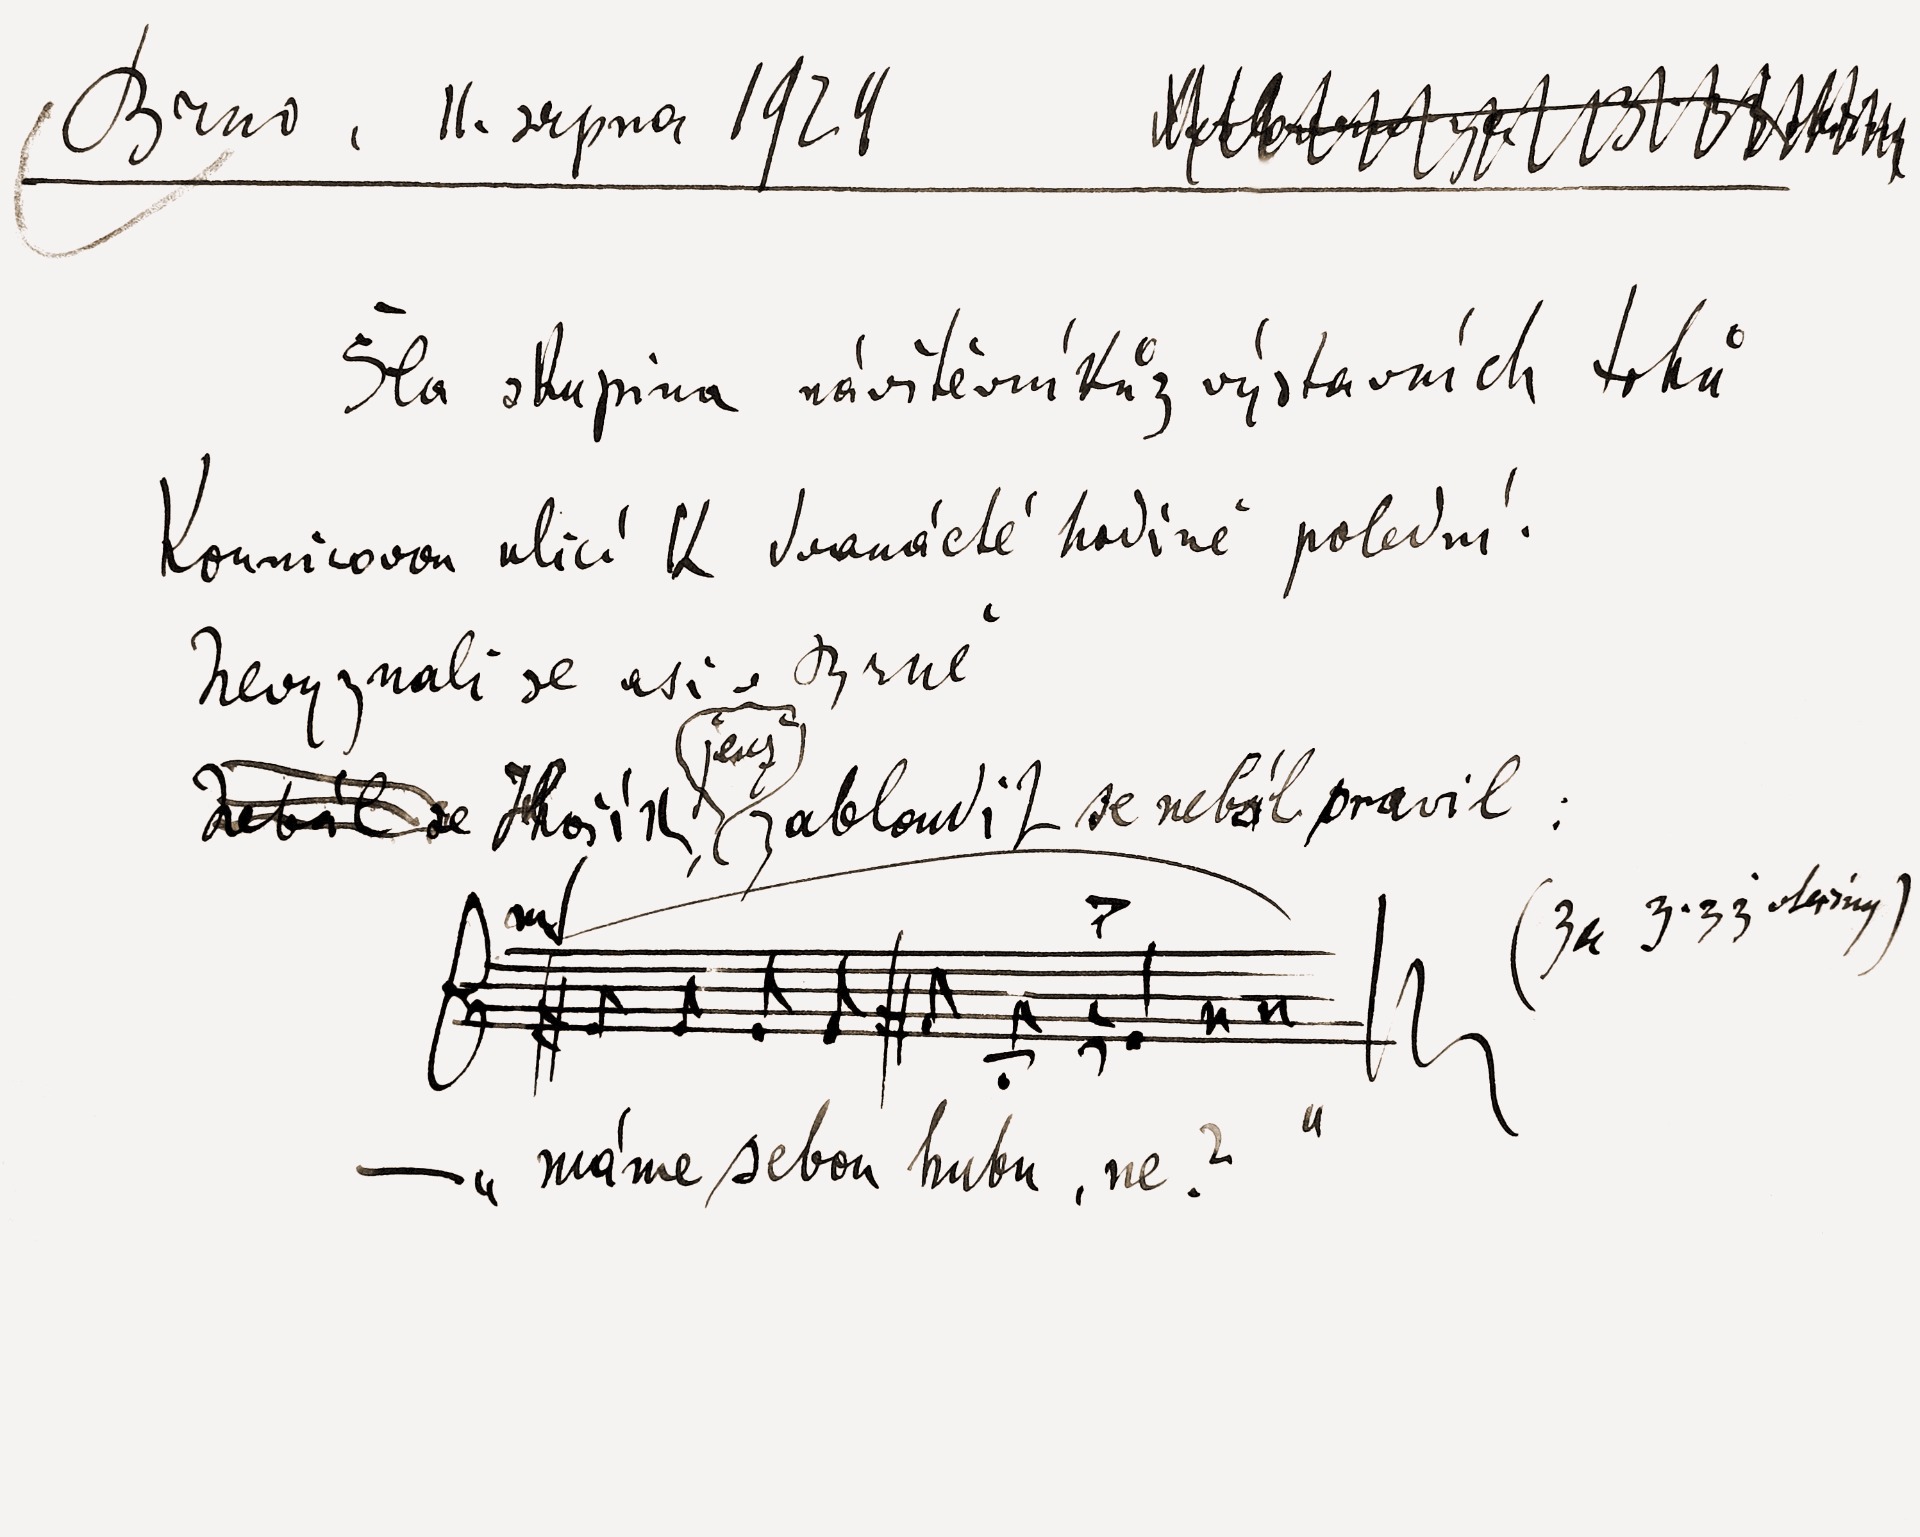 Brno, 11. srpna 1924
Šla skupina návštěvníků z výstavních trhů
Kounicovou ulicí k dvanácté hodině polední.
Nevyznali se asi v Brně
Nebál se
jenž zabloudit se nebál pravil :
mf
(za 3·33 vteřiny)
— „máme sebou hubu, ne?“